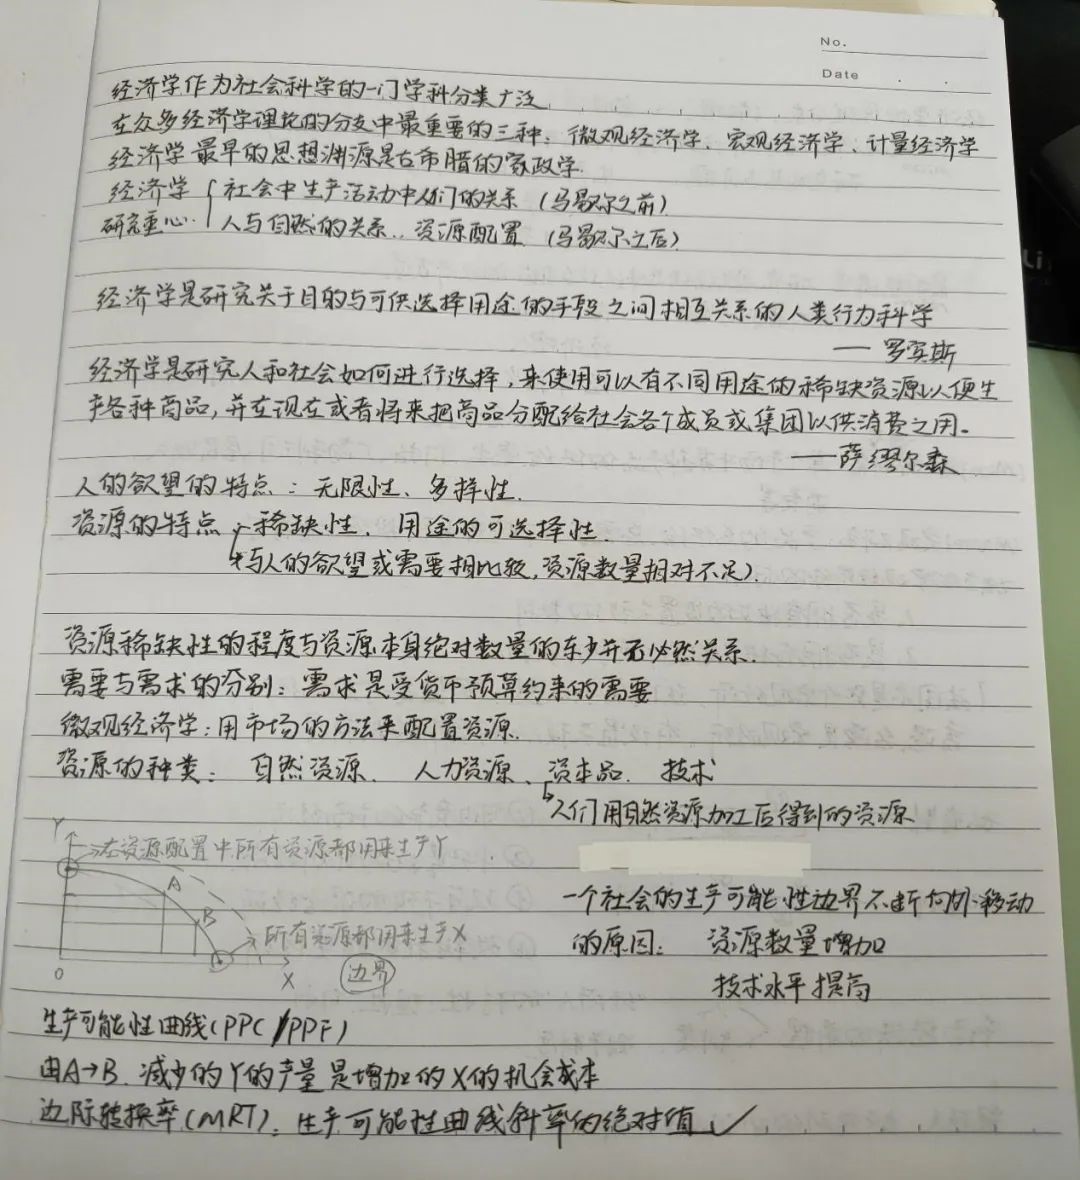 No.
Date
经济学作为社会科学的一门学科分类广泛
在众多经济学理论的分支中最重要的三种：微观经济学、宏观经济学、计量经济学
经济学最早的思想渊源是古希腊的家政学.
经济学 社会中生产活动中人们的关系 (马歇尔之前)
研究重心 人与自然的关系.. 资源配置 (马歇尔之后)
经济学是研究关于目的与可供选择用途的手段之间相互关系的人类行为科学
— 罗宾斯
经济学是研究人和社会如何进行选择，来使用可以有不同用途的稀缺资源以便生
产各种商品，并在现在或者将来把商品分配给社会各个成员或集团以供消费之用。
——萨缪尔森
人的欲望的特点：无限性、多择性.
资源的特点 稀缺性、用途的可选择性.
与人的欲望或需要相比较,资源数量相对不足).
资源稀缺性的程度与资源本身绝对数量的多少并无必然关系.
需要与需求的分别：需求是受货币预算约束的需要
微观经济学：用市场的方法来配置资源.
资源的种类： 自然资源. 人力资源、资本品. 技术
人们用自然资源加工后得到的资源
Y
在资源配置中所有资源都用来生产Y
A
B
所有资源都用来生产X
O
X
边界
一个社会的生产可能性边界不断向外移动
的原因： 资源数量增加
技术水平提高
生产可能性曲线(PPC/PPF)
由A→B. 减少的Y的产量是增加的X的机会成本
边际转换率(MRT)：生产可能性曲线斜率的绝对值 ✓